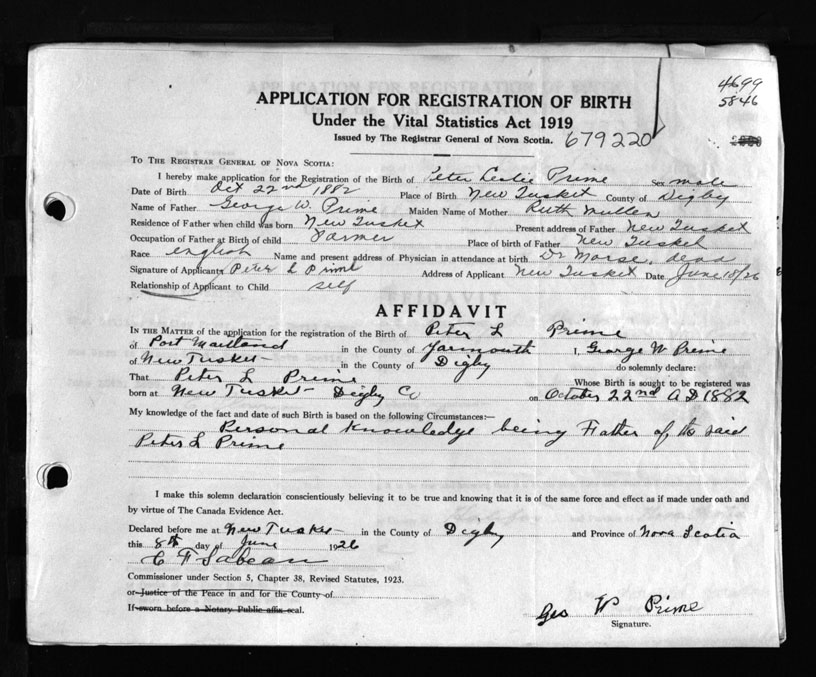 4699
5846
APPLICATION FOR REGISTRATION OF BIRTH
Under the Vital Statistics Act 1919
Issued by The Registrar General of Nova Scotia. 679220
TO THE REGISTRAR GENERAL OF NOVA SCOTIA:
I hereby make application for the Registration of the Birth of Peter Leslie Prime Sex male
Date of Birth Oct 22nd 1882 Place of Birth New Tusket County of Digby
Name of Father George W. Prime Maiden Name of Mother Ruth Mullen
Residence of Father when child was born New Tusket Present address of Father New Tusket
Occupation of Father at Birth of child Farmer Place of birth of Father New Tusket
Race english Name and present address of Physician in attendance at birth Dr Morse, dead
Signature of Applicant Peter L Prime Address of Applicant New Tusket Date June 18/26
Relationship of Applicant to Child self
AFFIDAVIT
IN THE MATTER of the application for the registration of the Birth of Peter L Prime
of Port Maitland in the County of Yarmouth I, George W Prime
of New Tusket in the County of Digby do solemnly declare:
That Peter L Prime Whose Birth is sought to be registered was
born at New Tusket Digby Co on October 22nd A D 1882
My knowledge of the fact and date of such Birth is based on the following Circumstances:—
Personal Knowledge being Father of the said
Peter L Prime
I make this solemn declaration conscientiously believing it to be true and knowing that it is of the same force and effect as if made under oath and
by virtue of The Canada Evidence Act.
Declared before me at New Tusket in the County of Digby and Province of Nova Scotia
this 8th day of June 1926
C F Sabean
Commissioner under Section 5, Chapter 38, Revised Statutes, 1923.
or Justice of the Peace in and for the County of
If sworn before a Notary Public affix seal.
Geo W Prime
Signature.